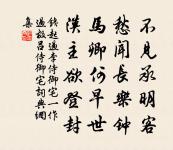 不見承明客
愁聞長樂鐘
馬卿何早世
漢主欲登封
錢起過李侍御宅一作
過故呂侍御宅詞典網
集